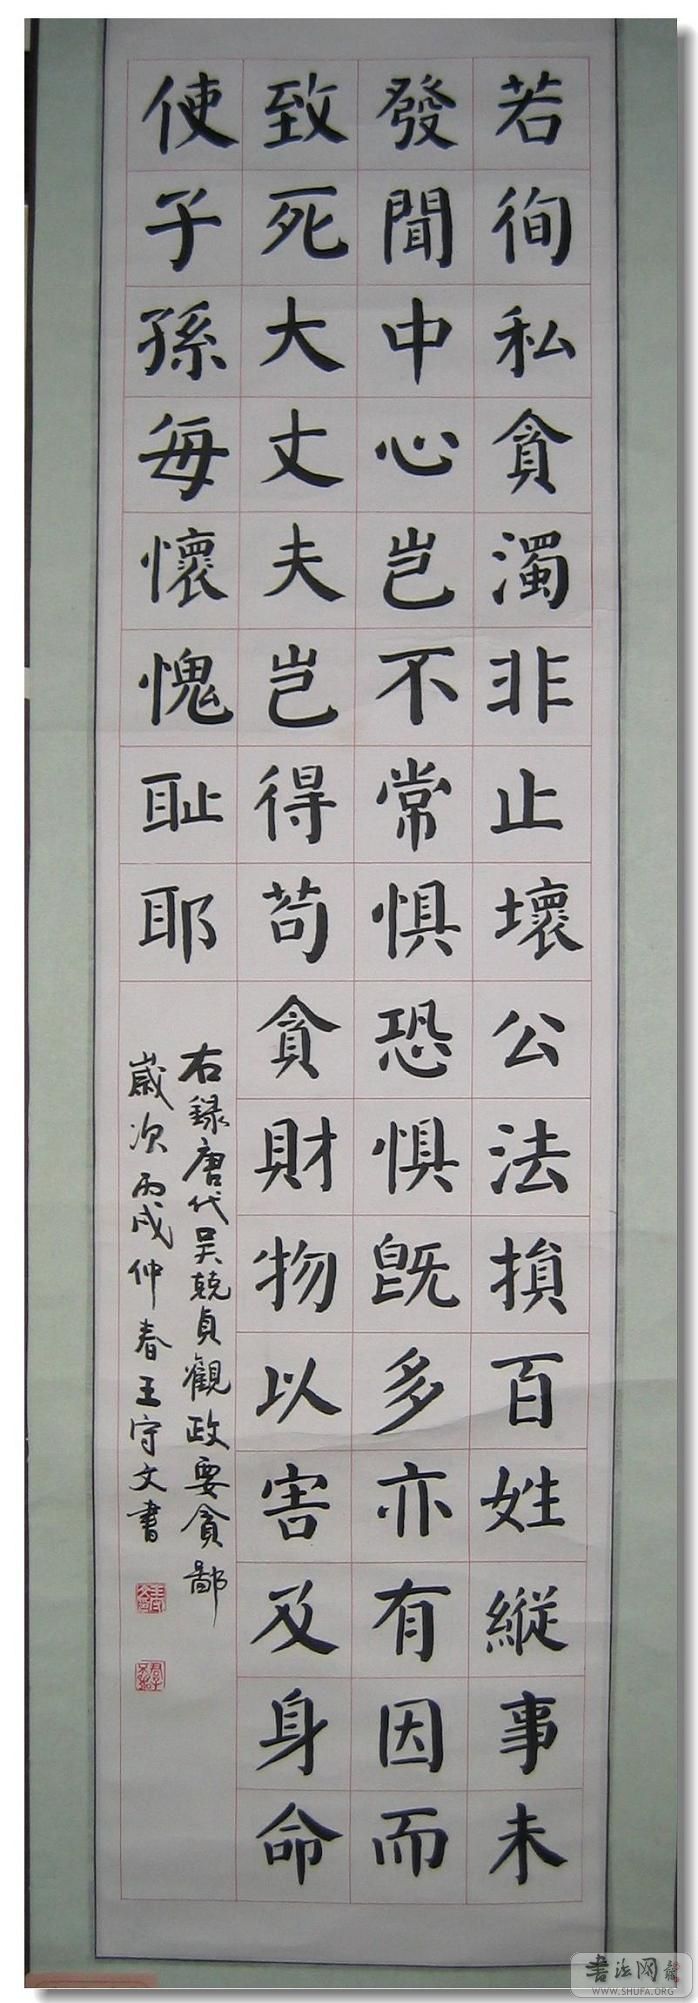 若徇私貪濁非止壞公法損百姓縱事未
發聞中心豈不常懼恐懼既多亦有因而
致死大丈夫豈得苟貪財物以害及身命
使子孫每懷愧耻耶
右録唐代吴兢貞觀政要貪鄙
歲次丙戌仲春王守文書
書法网
WWW.SHUFA.ORG